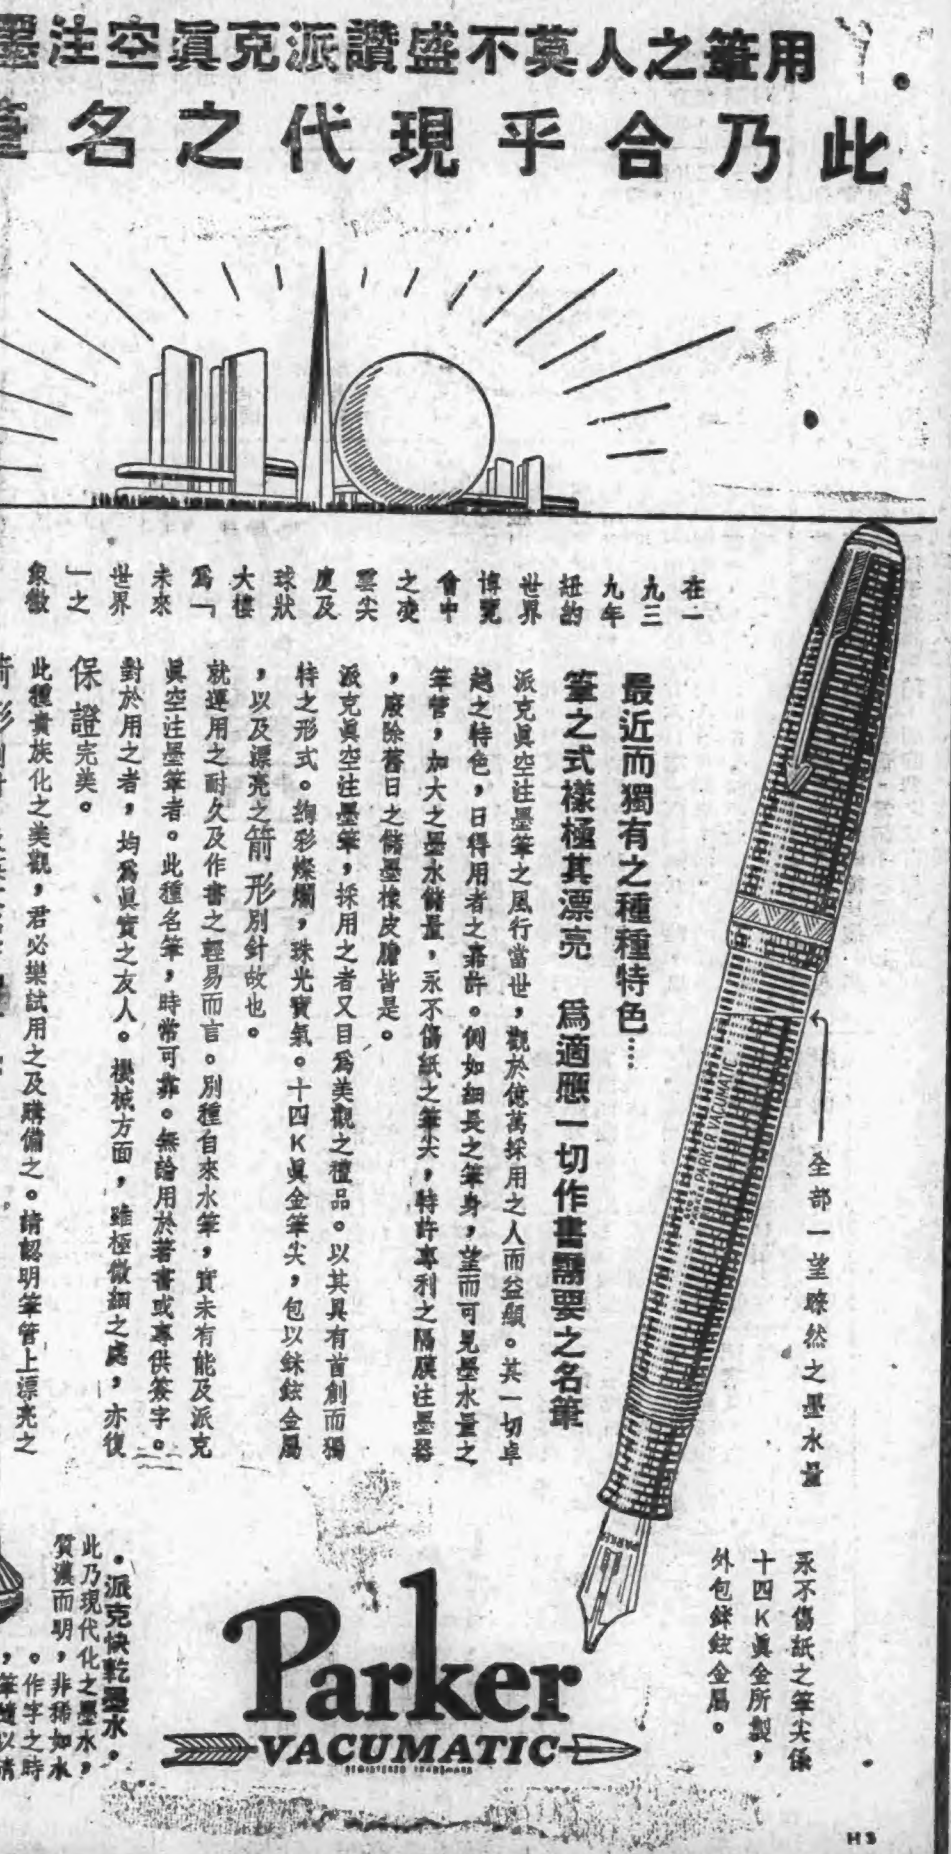 用筆之人莫不盛讚派克眞空注墨
此乃合乎現代之名筆
在一
九三
九年
紐約
世界
博覽
會中
之凌
雲尖
度及
球狀
大樓
爲「
未來
世界
」之
象徵
最近而獨有之種種特色⋯⋯
筆之式樣極其漂亮 爲適應一切作書需要之名筆
派克眞空注墨筆之風行當世，觀於億萬採用之人而益顯。其一切卓
越之特色，日得用者之嘉許。例如細長之筆身，望而可見墨水量之
筆管，加大之墨水儲量，永不傷紙之筆尖，特許專利之隔膜注墨器
，廢除舊日之儲墨橡皮膽皆是。
派克眞空注墨筆，採用之者又目爲美觀之禮品。以其具有首創而獨
特之形式。絢彩燦爛，珠光寶氣。十四K眞金筆尖，包以銥金屬
，以及漂亮之箭形別針故也。
就運用之耐久及作書之輕易而言。別種自來水筆，實未有能及派克
眞空注墨筆者。此種名筆，時常可靠。無論用於著書或專供簽字。
對於用之者，均爲眞實之友人。機械方面，雖極微細之處，亦復
保證完美。
此種貴族化之美觀，君必樂試用之及購備之。請認明筆管上漂亮之
箭形
全部一望瞭然之墨水量
PARKER VACUMATIC
PARKER
永不傷紙之筆尖係
十四K眞金所製，
外包銥金屬。
Parker
VACUMATIC
REGISTERED TRADEMARK
•派克快乾墨水。
此乃現代化之墨水，
質濃而明，非稀如水
。作字之時
H3